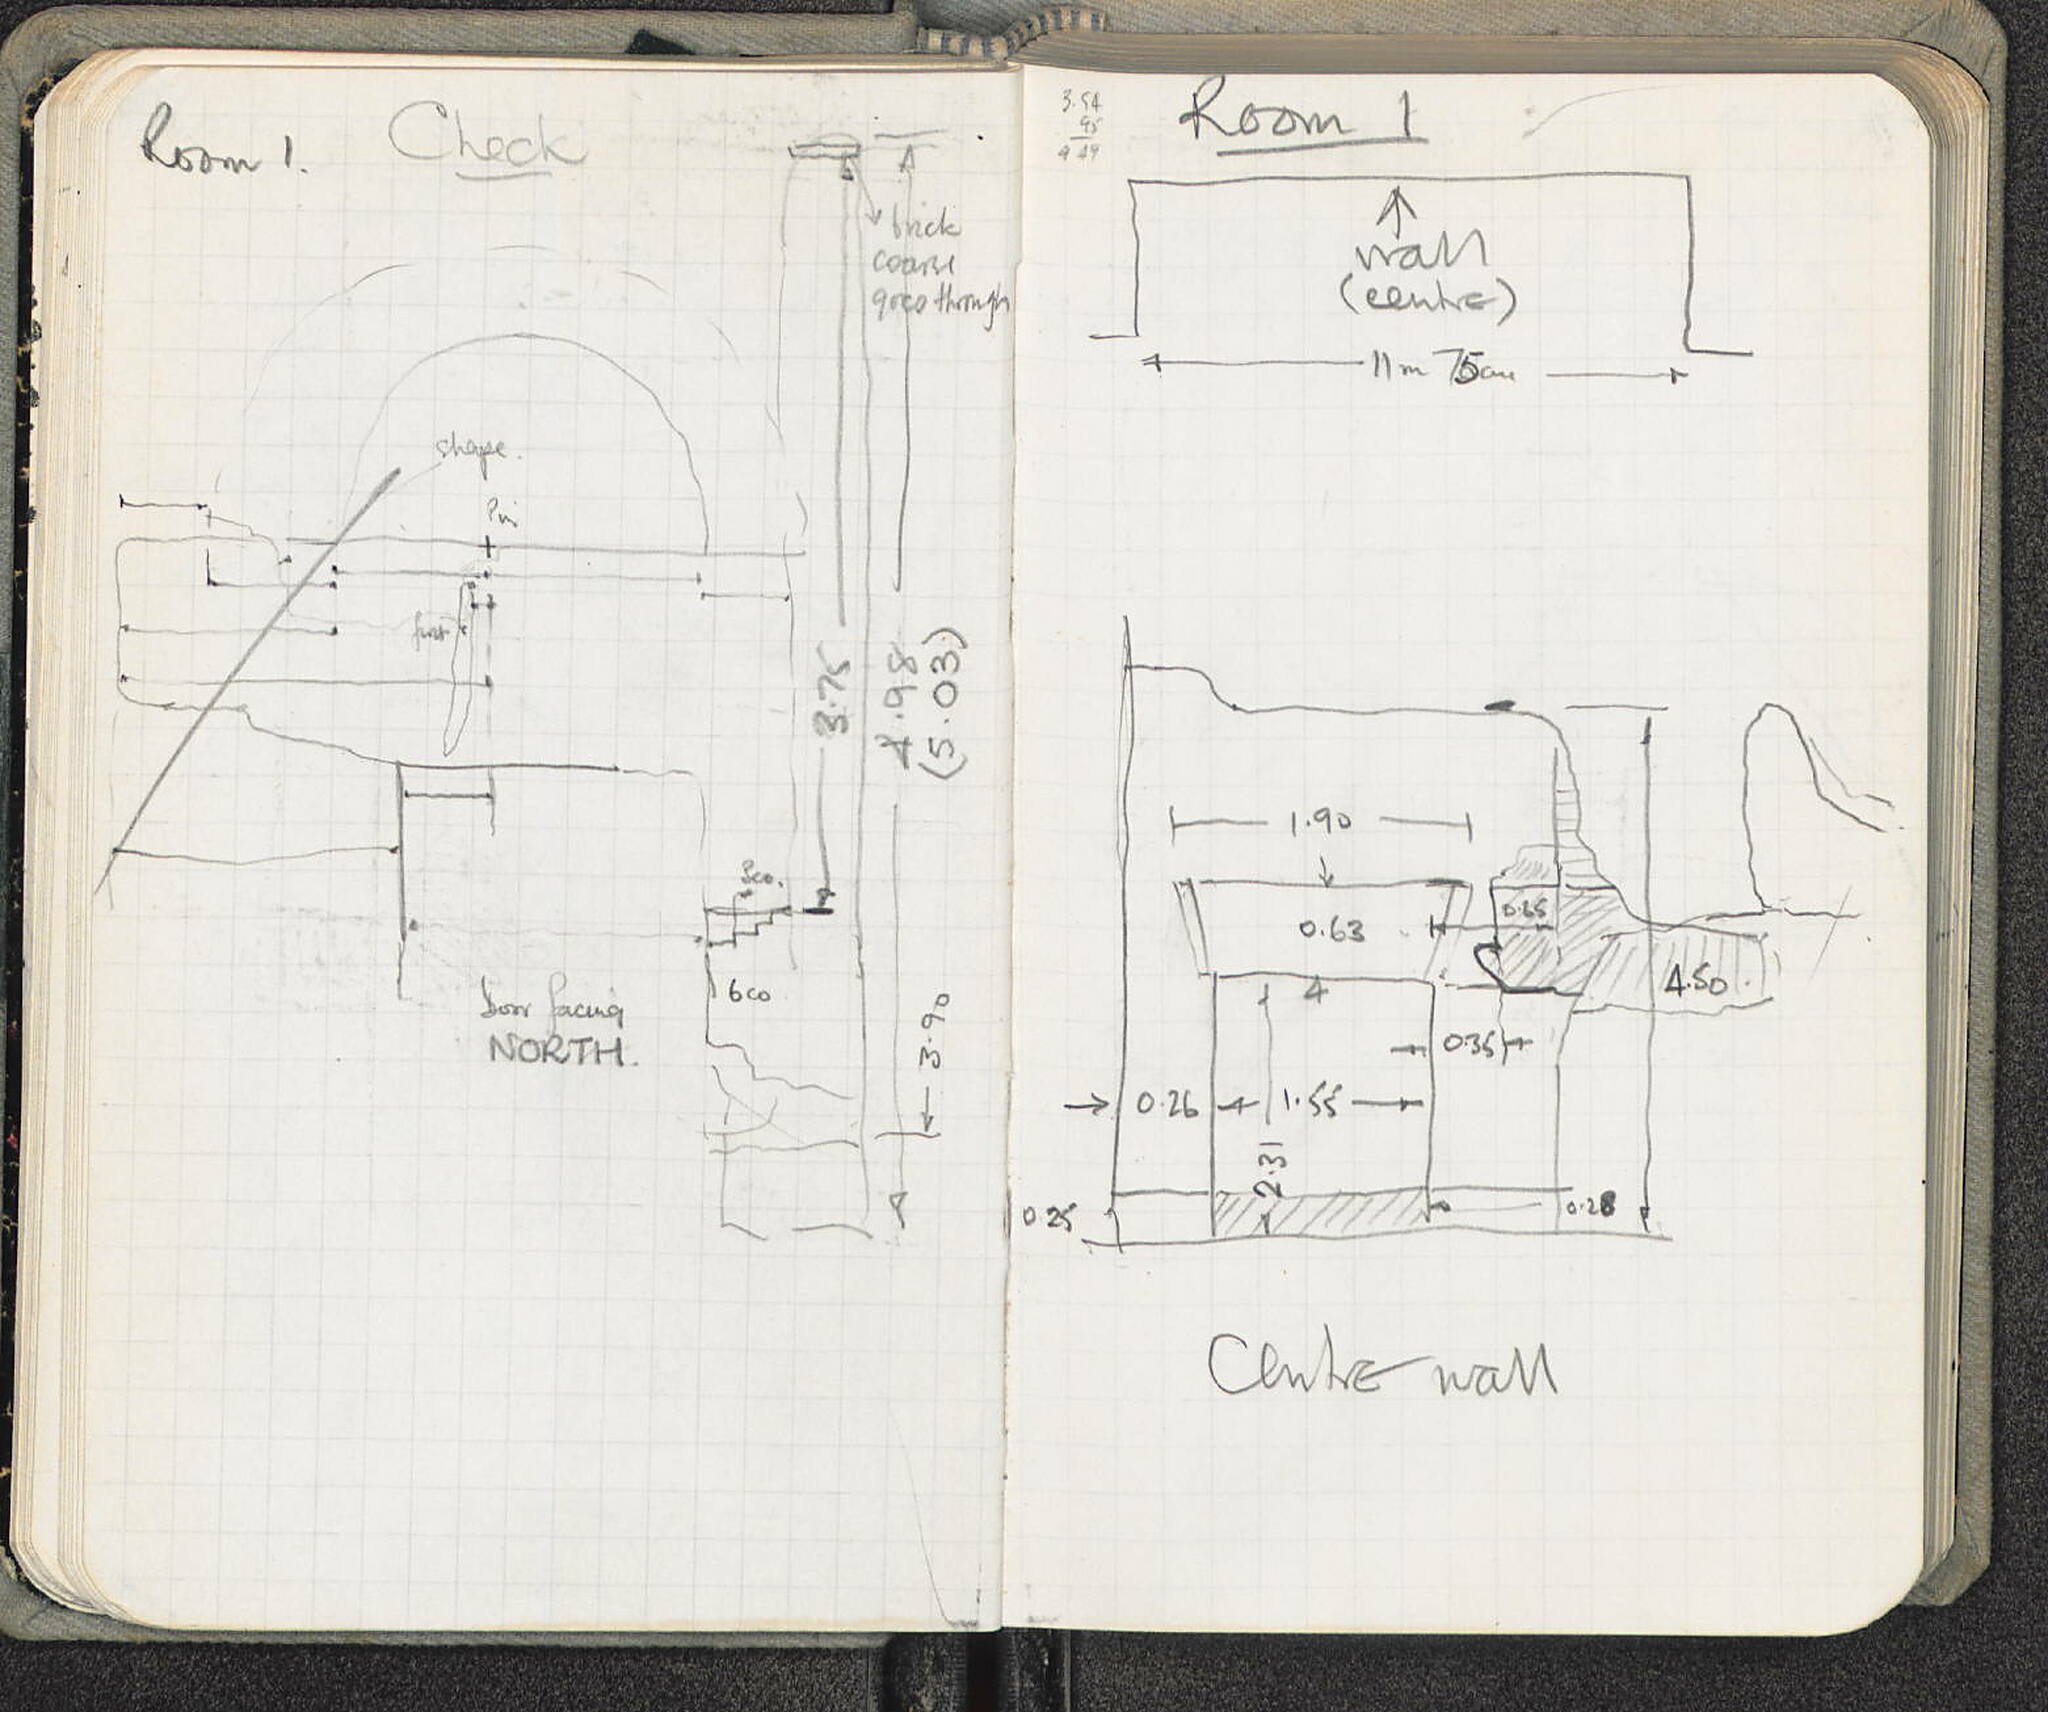 Room 1.
Check
brick
coarse
goes through
shape.
Pin
3.75
4.98
(5.03)
3co.
6co
Door facing
NORTH.
3.90
3.54
95
Room 1
wall
(centre)
11m 75cm
1.90
0.63
0.65
4.50
0.35
0.26
1.55
2.31
0.25
0.28
Centre wall